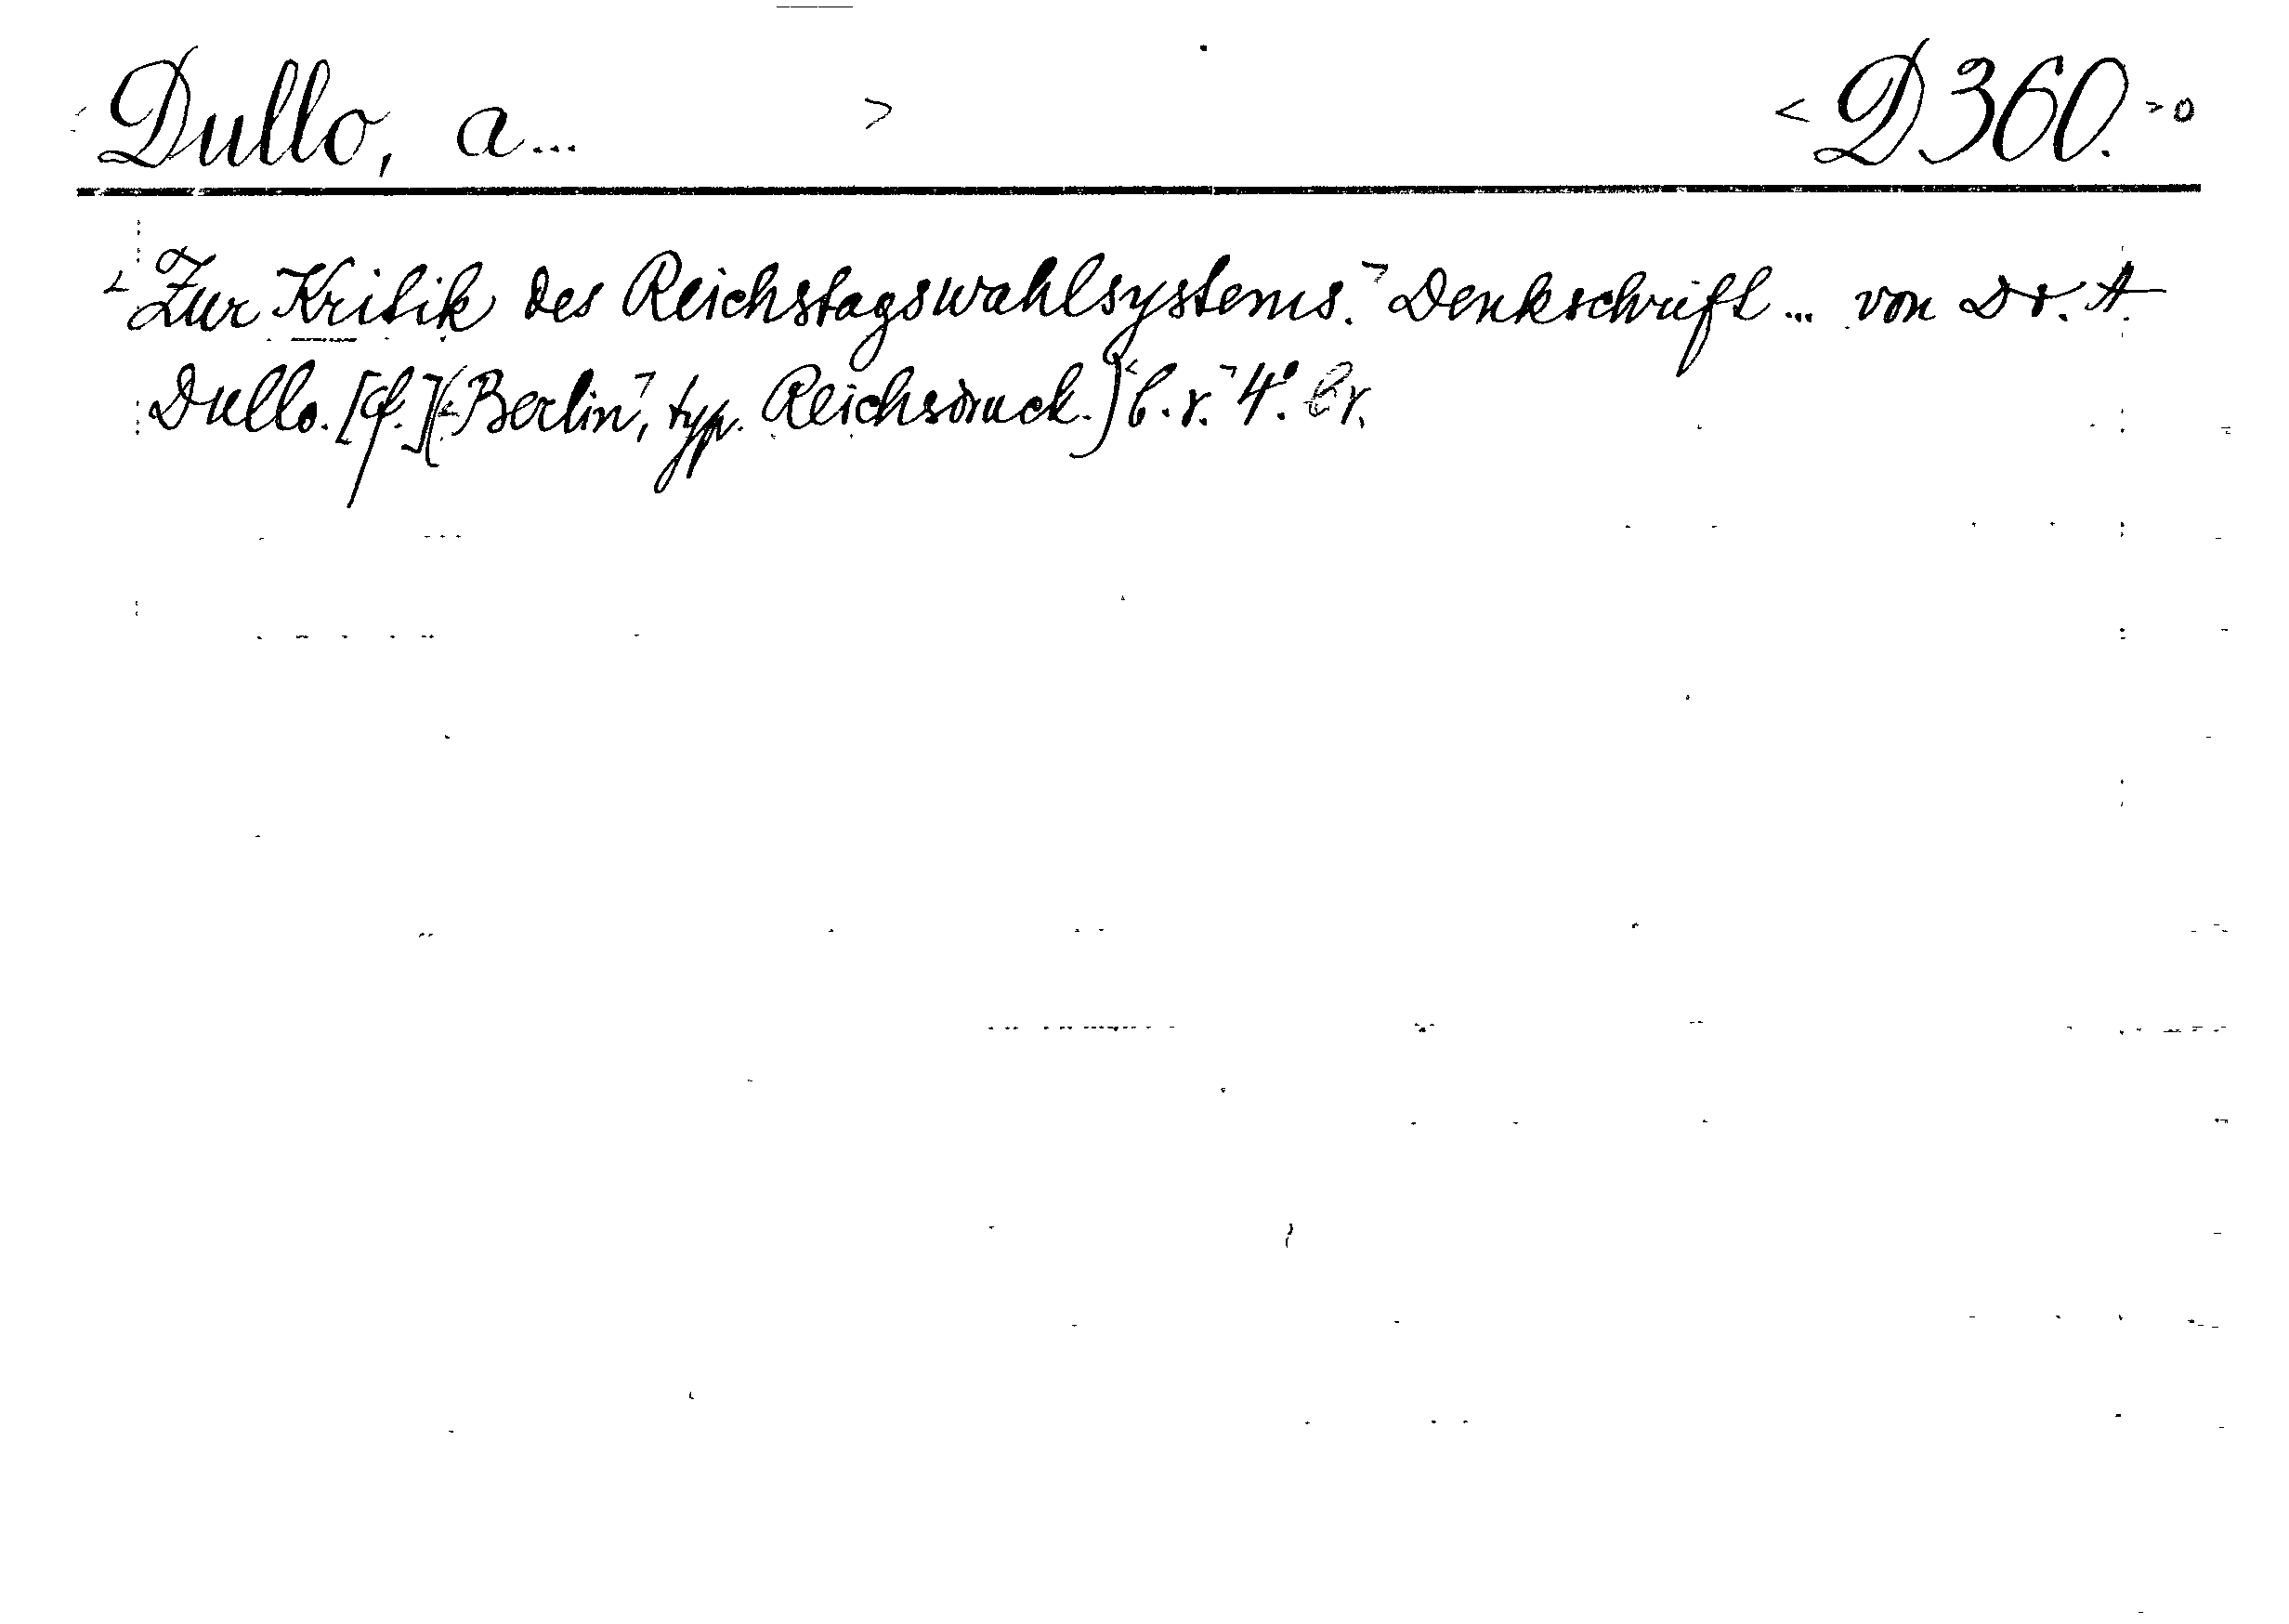 <Dullo, a... > <D360.>o
<Zur Kritik des Reichstagswahlsystems.> Denkschrift ... von Dr. A.
Dullo. [cf.] (<Berlin>, typ. Reichsdruck.) <b. r.> 4°. br.